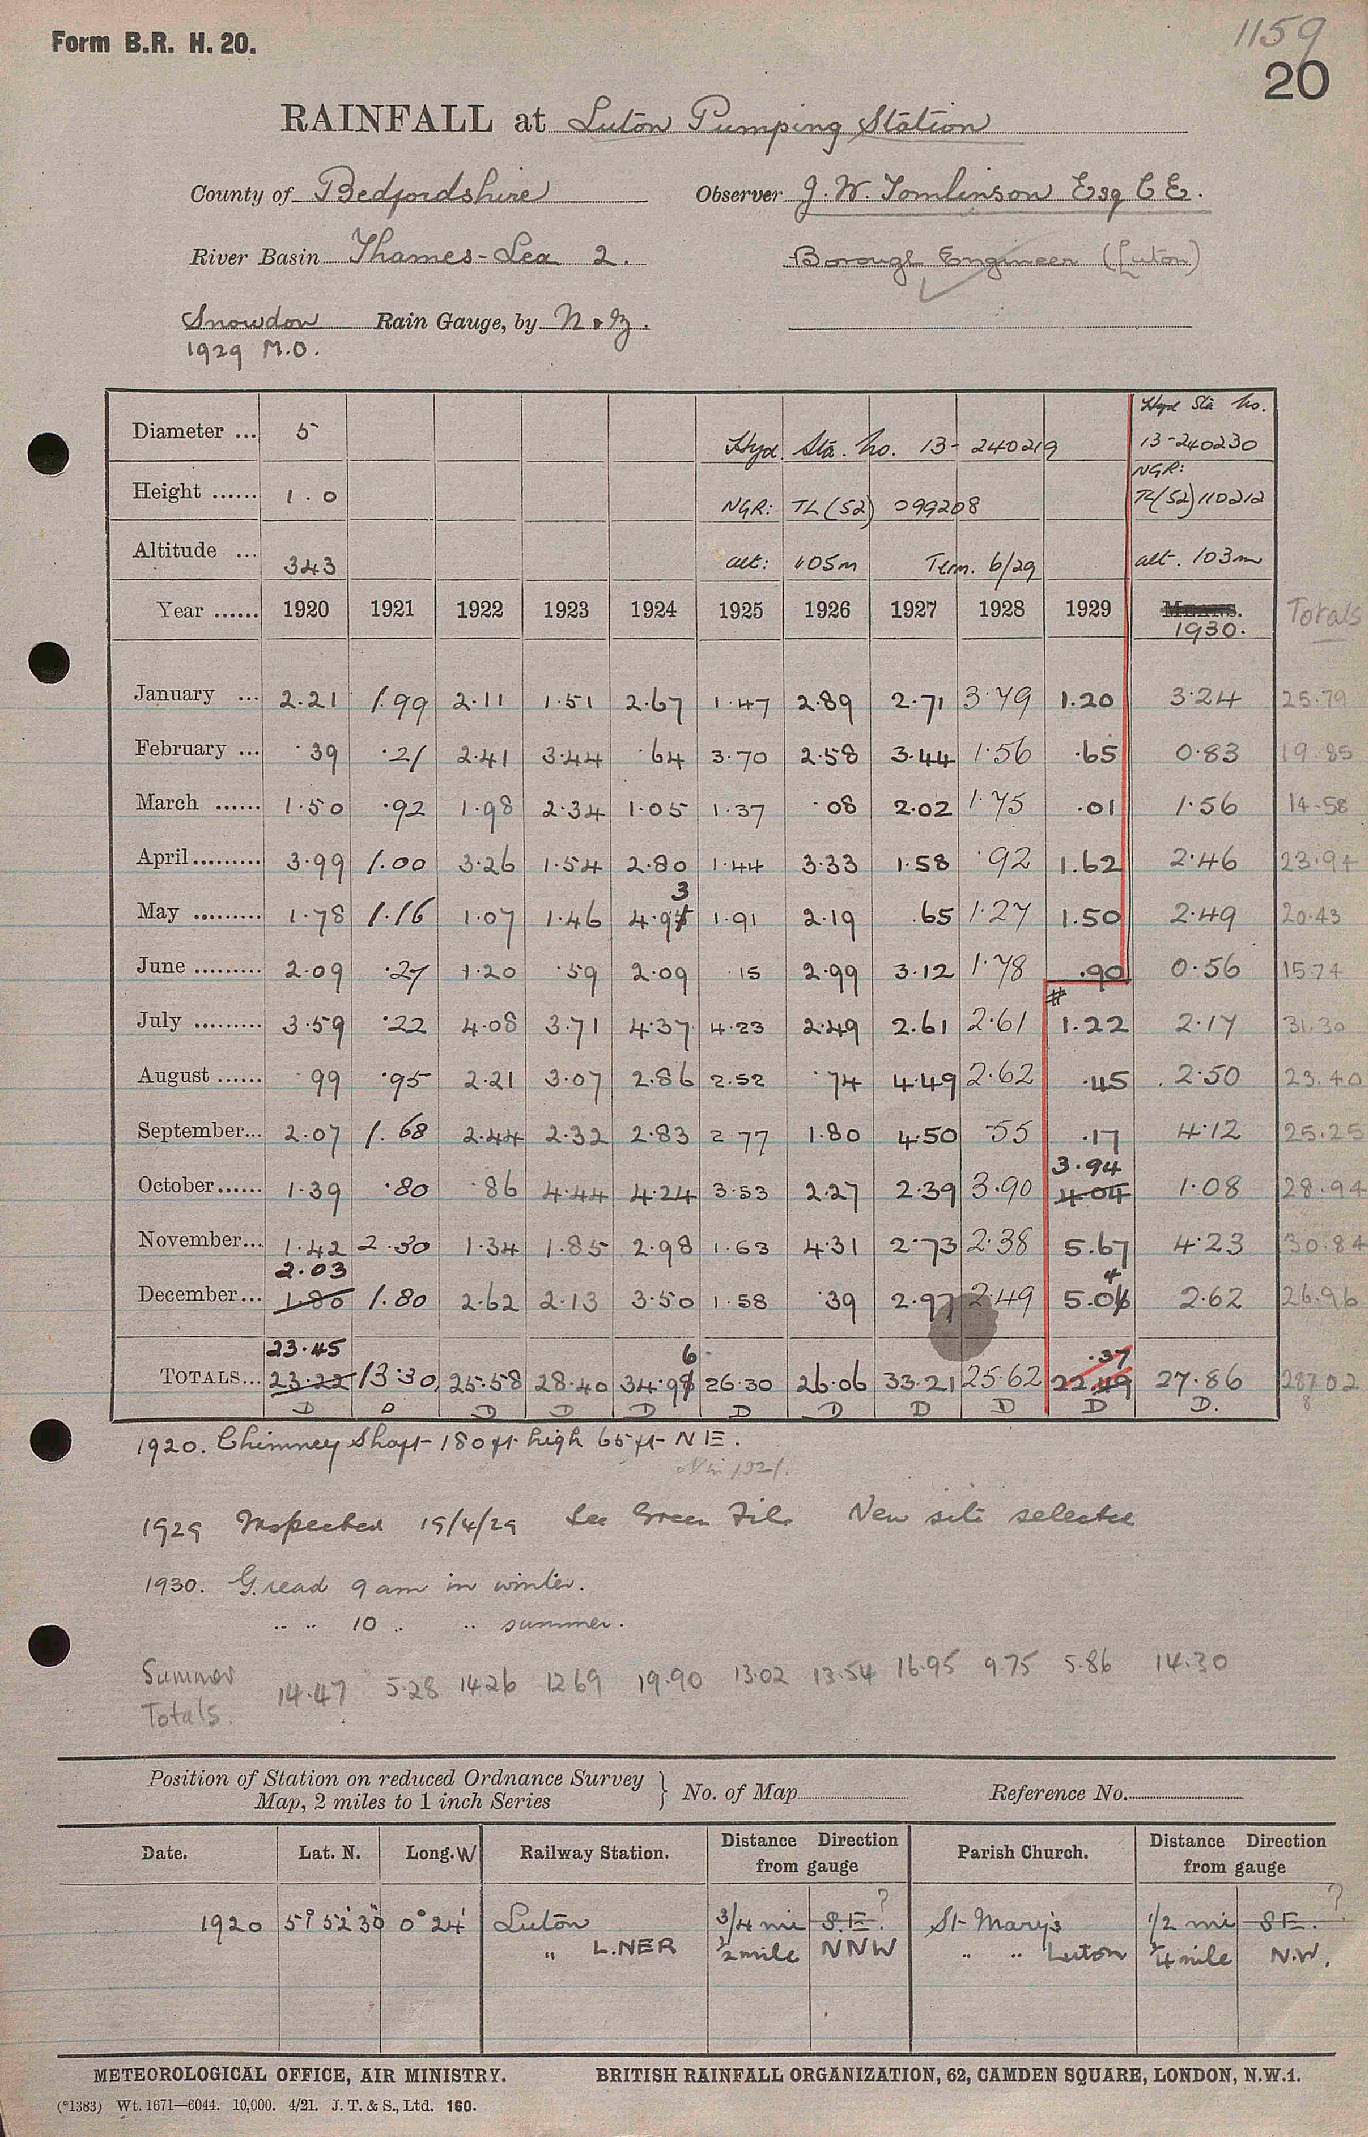 Form B.R. H. 20.
1159
20
RAINFALL at Luton Pumping Station
County of Bedfordshire Observer J. W. Tomlinson Esq C E.
River Basin Thames-Lea 2. Borough Engineer (Luton)
Snowdon Rain Gauge, by N & Z.
1929 M.O.
Hyd Sta No.
Diameter ... 5 Hyd. Sta. No. 13- 240219 13-240230
NGR:
Height ...... 1.0 NGR: TL (52) 099208 TL(52)110212
Altitude ... 343 alt: 105m Term. 6/29 alt. 103m
Year ...... 1920 1921 1922 1923 1924 1925 1926 1927 1928 1929 MEANS. Totals
1930.
January ... 2.21 1.99 2.11 1.51 2.67 1.47 2.89 2.71 3.79 1.20 3.24 25.79
February ... .39 .21 2.41 3.44 .64 3.70 2.58 3.44 1.56 .65 0.83 19.85
March ...... 1.50 .92 1.98 2.34 1.05 1.37 .08 2.02 1.75 .01 1.56 14.58
April ......... 3.99 1.00 3.26 1.54 2.80 1.44 3.33 1.58 .92 1.62 2.46 23.94
3
May ......... 1.78 1.16 1.07 1.46 4.94 1.91 2.19 .65 1.27 1.50 2.49 20.43
June ......... 2.09 .27 1.20 .59 2.09 .15 2.99 3.12 1.78 .90 0.56 15.74
#
July ......... 3.59 .22 4.08 3.71 4.37 4.23 2.49 2.61 2.61 1.22 2.17 31.30
August ...... .99 .95 2.21 3.07 2.86 2.52 .74 4.49 2.62 .45 2.50 23.40
September... 2.07 1.68 2.44 2.32 2.83 2.77 1.80 4.50 .55 .17 4.12 25.25
3.94
October...... 1.39 .80 .86 4.44 4.24 3.53 2.27 2.39 3.90 4.04 1.08 28.94
November... 1.42 2.30 1.34 1.85 2.98 1.63 4.31 2.73 2.38 5.67 4.23 30.84
2.03 4
December... 1.80 1.80 2.62 2.13 3.50 1.58 .39 2.97 2.49 5.06 2.62 26.96
23.45 6 .37
TOTALS... 23.22 13.30 25.58 28.40 34.98 26.30 26.06 33.21 25.62 22.49 27.86 287.02
8
D D D D D D D D D D D.
1920. Chimney Shaft 180ft high 65ft N E.
1929 Inspected 19/4/29 See Green File New site selected
1930. G. read 9 am in winter.
" " 10 " " summer.
Summer
Totals. 14.47 5.28 14.26 12.69 19.90 13.02 13.54 16.95 9.75 5.86 14.30
Position of Station on reduced Ordnance Survey
Map, 2 miles to 1 inch Series } No. of Map Reference No.
Date. Lat. N. Long. W Railway Station. Distance Direction from gauge Parish Church. Distance Direction from gauge
1920 51° 52' 30" 0° 24' Luton 3/4 mi S.E. ? St Mary's 1/2 mi S E. ?
" L.NER 1/2 mile NNW " " Luton 1/4 mile N.W.
METEOROLOGICAL OFFICE, AIR MINISTRY. BRITISH RAINFALL ORGANIZATION, 62, CAMDEN SQUARE, LONDON, N.W.1.
(*1383) Wt. 1671—6044. 10,000. 4/21. J. T. & S., Ltd. 160.